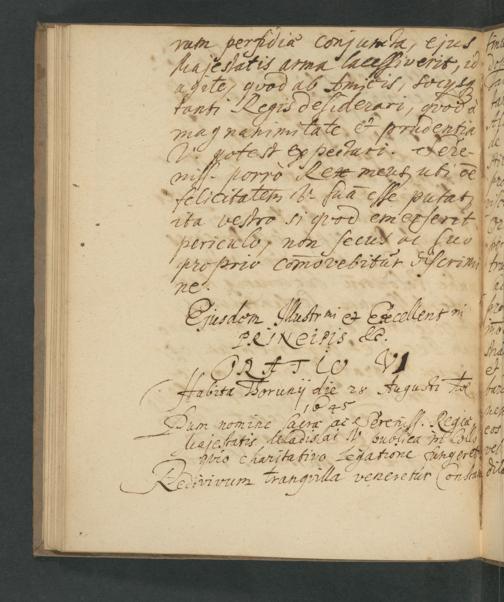 rum perfidia conjuncta, ejus
Majestatis arma lacessiverit, id
agite, quod ab Amicis, Socijsq
tanti Regis desiderari, quod à
magnanimitate et prudentia
V. potest expectari. Sere-
niss. porro Rex meus, uti oē
felicitatem V. suā esse putat,
ita vestro si quod emerserit
periculo, non secus ac suo
proprio com̄ovebitur discrimi
ne.
Ejusdem Illustrmi et Excellentmi
PRINCIPIS &c.
ORATIO VI
Habita Thorunij die 28 Augusti
1645
Dum nomine Sacrae ac Sereniss. Regiae
Majestatis Vladislai IV publica in Collo
quio charitativo Legatione fungeret
Redivivum tranquilla veneretur Constan